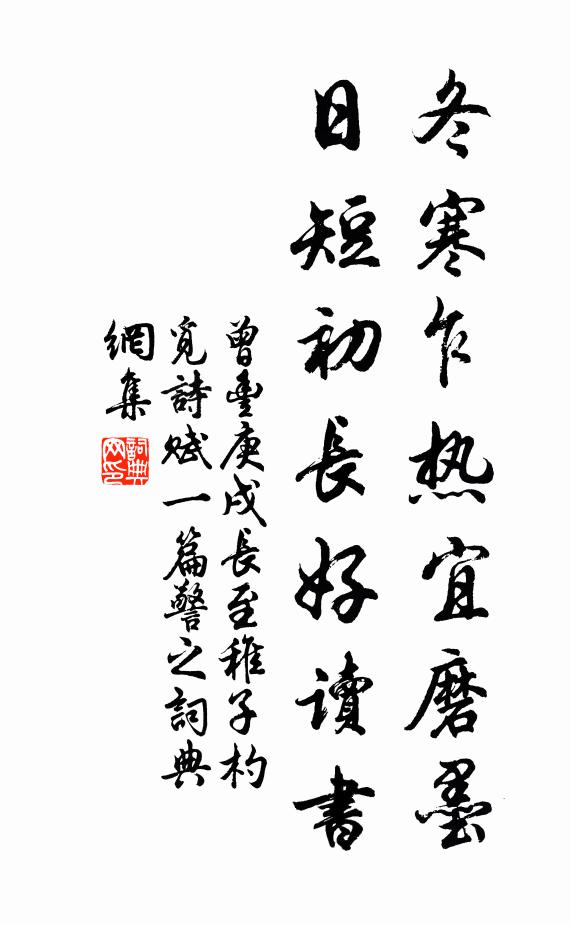 冬寒乍热宜磨墨
日短初長好讀書
曾豊庚戌長至稚子杓
覓詩赋一篇警之詞典
網集
詞典
网印